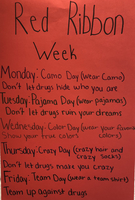 Red Ribbon
Week
Monday: Camo Day (wear Camo)
Don't let drugs hide who you are
Tuesday: Pajama Day (wear pajamas)
Don't let drugs ruin your dreams
Wednesday: Color Day (wear your
Show your true colors colors)
Thursday: Crazy Day (crazy hair and
crazy socks)
Don't let drugs make you crazy
Friday: Team Day (wear a team shirt)
Team up against drugs